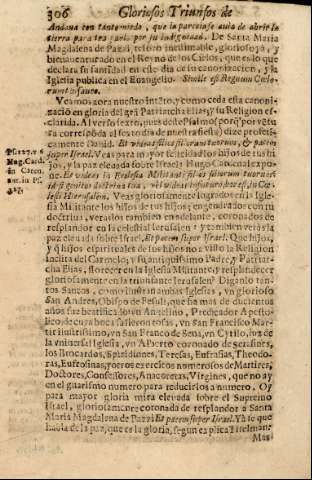 306 Gloriosos Triunfos de
Andana con tanto miedo, que le parecia se auia de abrir la
tierra para tragarle por su indignidad. De Santa Maria
Magdalena de Pazzi tesoro inestimable, gloriosa ya, y
bienauenturada en el Reyno de los Cielos, que es lo que
declara su santidad en este dia de su canonizacion, y la
Iglesia publica en el Euangelio. Simile est Regnum Cœlo-
rum thesauro.
Veamos aora nuestro intento, y como ceda esta canoni-
zacion en gloria del gran Patriarcha Elias, y su Religion es-
clarida. Al verso sexto, que es del Psalmo
su correspõde al sexto dia de nuestra fiesta) dize profeti-
camente Dauid. Et videas filios filiorum tuorum, & pacem
super Israel. Veas para mayor felicidad los hijos de tus hi-
jos, y la paz eleuada sobre Israel: Hugo Cardenal expo-
ne. Et videas in Ecclesia Militante filios filiorum tuorum
id est genitos doctrina tua, vel videas in futuro pacem, in Cœ-
lesti Hierusalem. Veas gloriosamente logrados en la Igle-
sia Militante los hijos de tus hijos; engendrados con tu
doctrina, veraslos tambien en adelante, coronados de
resplandor en la celestial Ierusalen: y tambien verás la
paz eleuada sobre Israel. Et pacem super Israel. Que hijos,
y hijos espirituales de los hijos no à visto la Religion
inclita del Carmelo; y su antiquissimo Padre, y Patriar-
cha Elias, florecer en la Iglesia Militante; y resplandecer
gloriosamente en la triunfante Ierusalen? Diganlo tan-
tos Santos, como ilustran ambas Iglesias, vn glorioso
San Andres, Obispo de Fesuli, que ha mas de ducientos
años fue beatifico; vn Angelino, Predicador Aposto-
lico de cuya boca salieron rosas, vn San Francisco Mar-
tir ilustrissimo, vn San Franco de Sena, vn Cyrilo, luz de
la vniuersal Iglesia, vn Alberto coronado de serafines,
los Brocardos, Spiridianes, Teresas, Eufrasias, Theodo-
ras, Eufrosinas, y otros exercitos numerosos de Martires,
Doctores, Confessores, Anacoretas, Virgines, que no ay
en el guarismo numero para reducirlos a numero. Oy
para mayor gloria mira eleuada sobre el Supremo
Israel, gloriosamente coronada de resplandor a Santa
Maria Magdalena de Pazzi Et pacem super Israel. Ya lo que
habla de la paz, que es la gloria, segun explica Titelman:
Mas
Hug. Card.